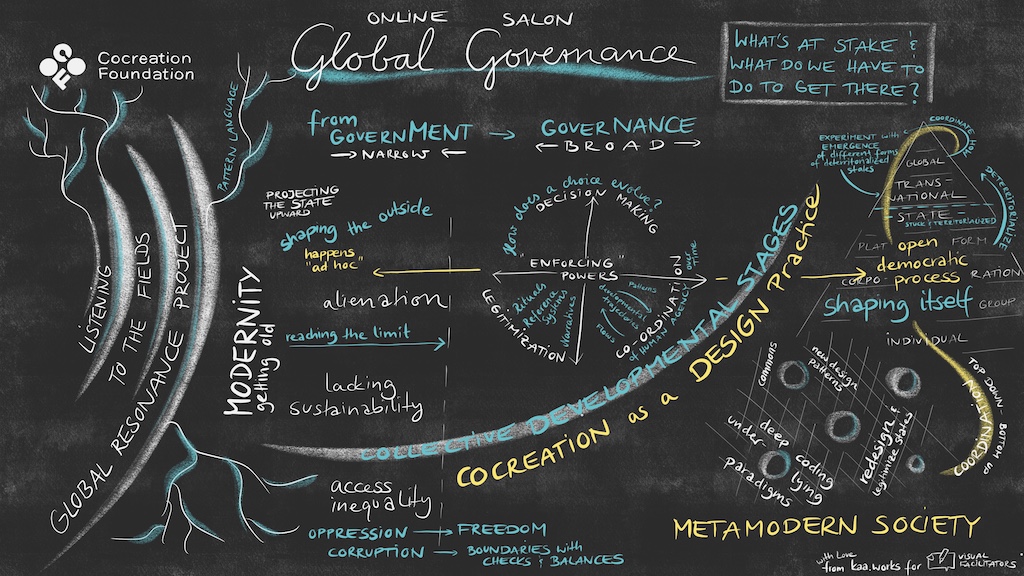 ONLINE SALON
Global Governance
Cocreation
Foundation
WHAT'S AT STAKE &
WHAT DO WE HAVE TO
DO TO GET THERE?
PATTERN LANGUAGE
LISTENING
TO THE FIELDS
GLOBAL RESONANCE PROJECT
from
GOVERNMENT → GOVERNANCE
→ NARROW ← ← BROAD →
PROJECTING
THE STATE
UPWARD
shaping the outside
happens
"ad hoc"
alienation
reaching the limit
lacking
sustainability
MODERNITY
getting old
access
inequality
OPPRESSION → FREEDOM
CORRUPTION → BOUNDARIES with
CHECKS & BALANCES
How does a choice evolve?
DECISION MAKING
"ENFORCING"
POWERS
LEGITIMIZATION
Rituals
Reference
Systems
Narratives
CO-ORDINATION
over time
Patterns
developmental
trajectories
views
OF HUMAN AGENCY
COLLECTIVE DEVELOPMENTAL STAGES
COCREATION as a DESIGN Practice
EXPERIMENT with
EMERGENCE
of different forms
of deterritorialized
states
COORDINATE
HOW
DETERRITORIALIZE
GLOBAL
TRANS-
NATIONAL
STATE
STUCK & TERRITORIALIZED
PLAT open FORM
democratic
CORPO process RATION
shaping itself GROUP
INDIVIDUAL
TOP DOWN - BOTTOM UP
COORDINATION
COMMONS
new design
patterns
deep
under
coding
lying
paradigms
redesign &
legitimize states
METAMODERN SOCIETY
with Love
from kaa.works for VISUAL
FACILITATORS